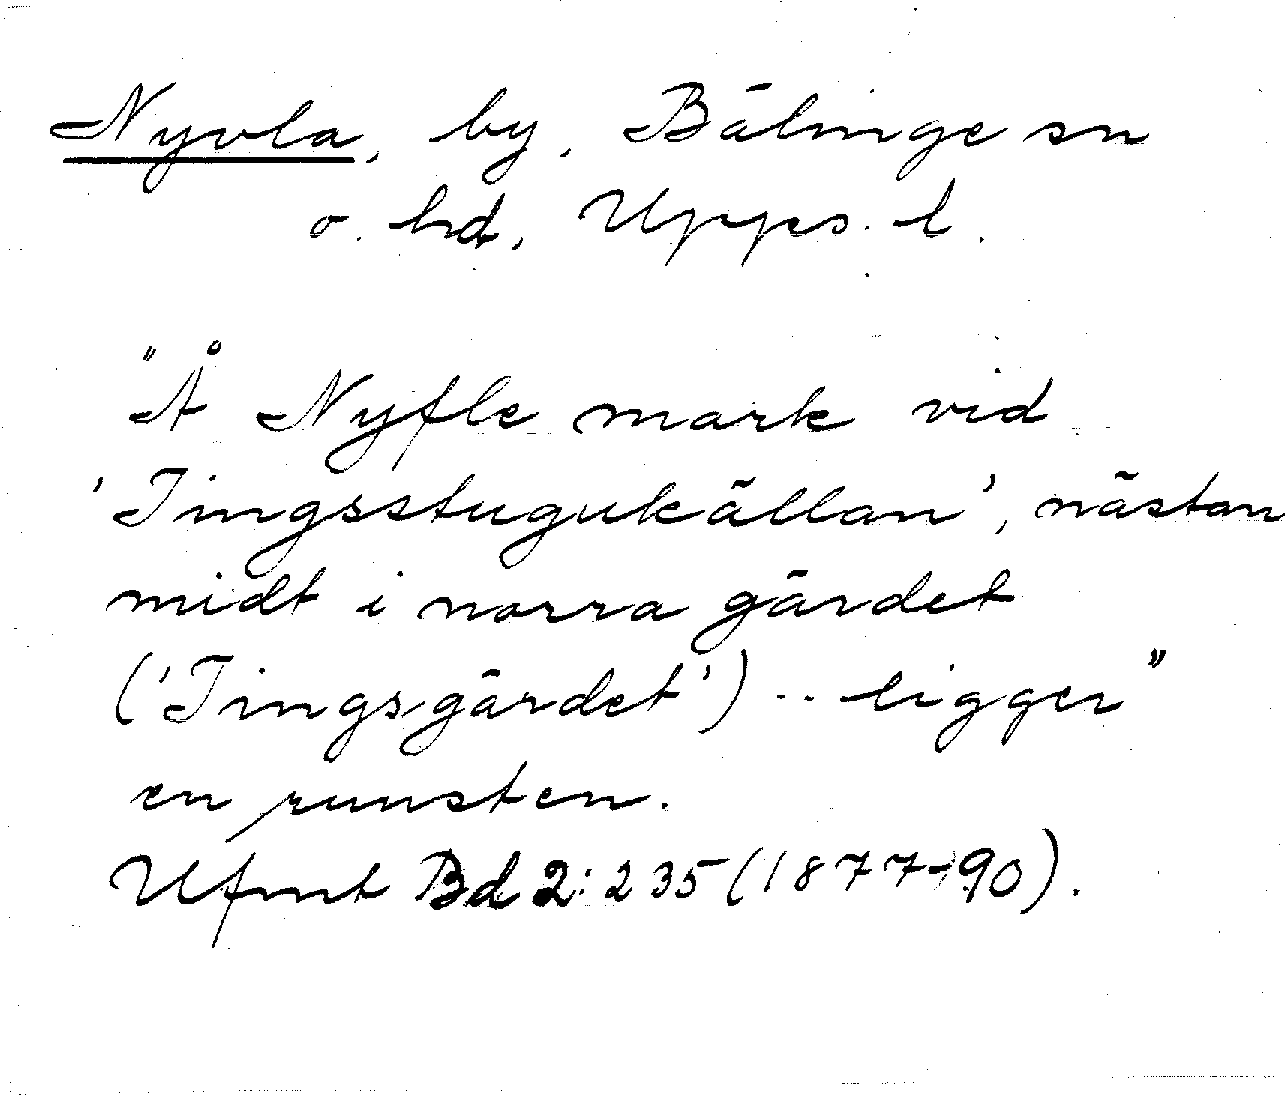 Nyvla, by, Bälinge sn
o. hd, Upps. l.
"Å Nyfle mark vid
'Tingsstugukällan', nästan
midt i norra gärdet
('Tingsgärdet') .. ligger"
en runsten.
Ufmt Bd 2:235 (1877-90).